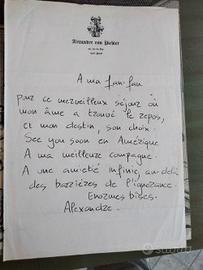 Alexander von
A ma fan-fan
pour ce merveilleux séjour où
mon âme a trouvé le repos,
et mon destin, son choix.
See you soon en Amérique
A ma meilleure compagne.
A une amitié infinie, au-delà
des barrières de l'ignorance.
Enormes bises.
Alexandre.